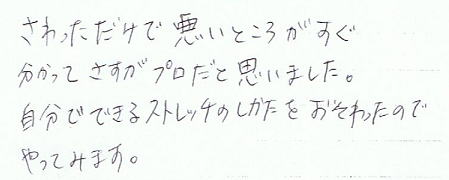 さわっただけで悪いところがすぐ
分かってさすがプロだと思いました。
自分でできるストレッチのしかたをおそわったので
やってみます。